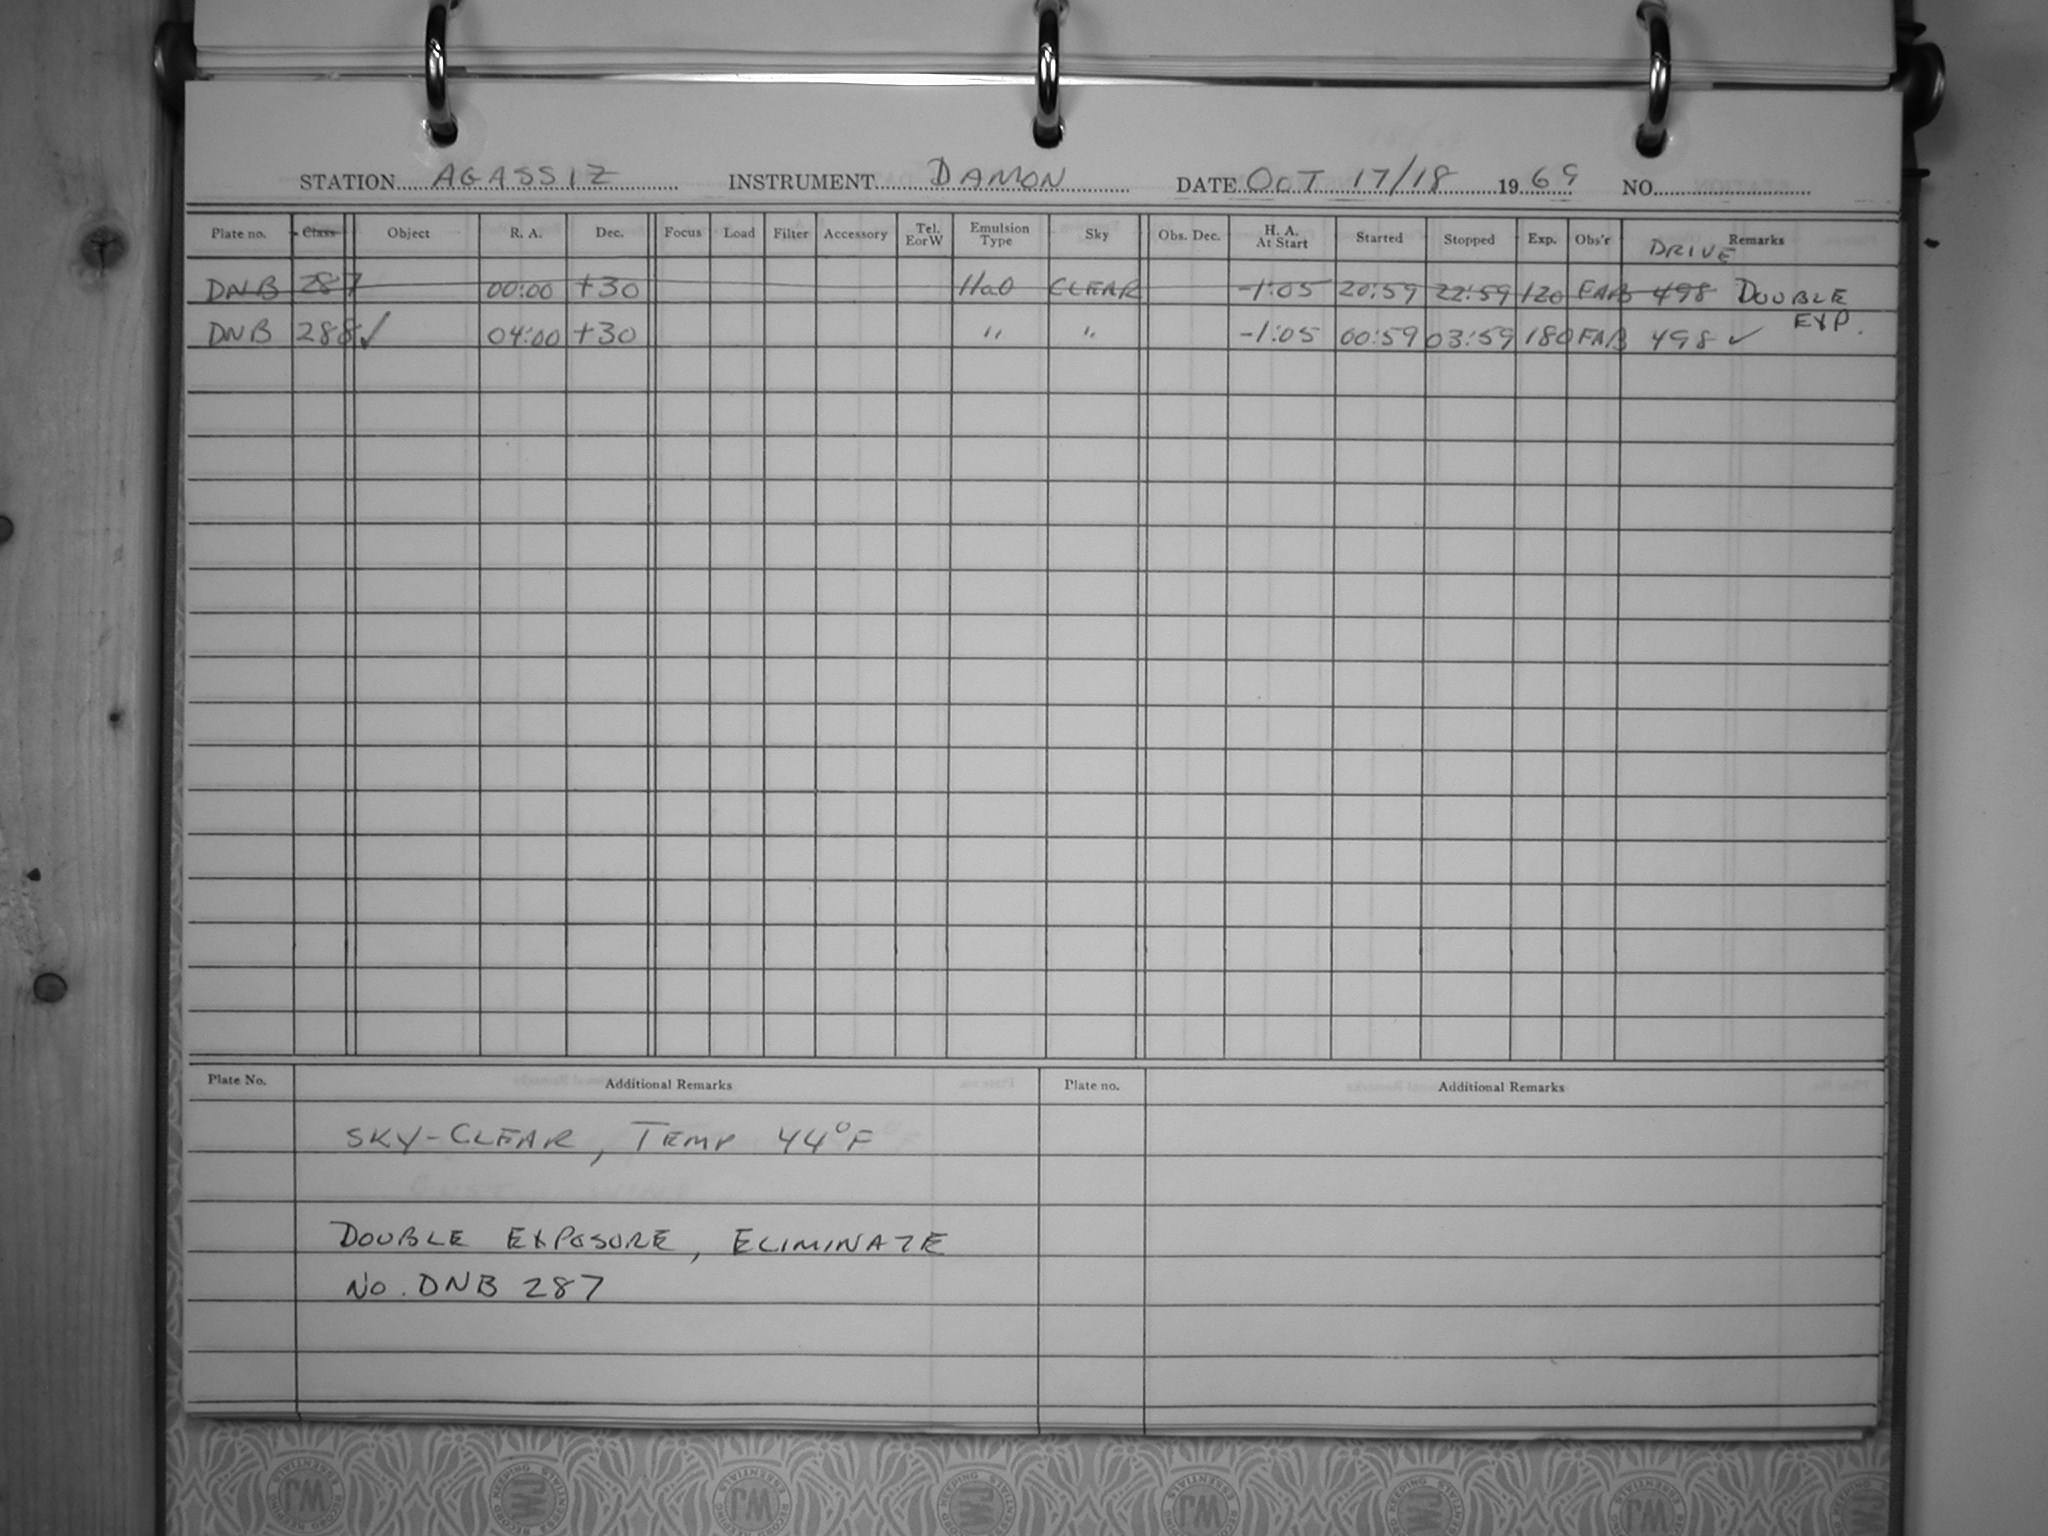 STATION AGASSIZ INSTRUMENT DAMON DATE OCT 17/18 1969 NO.
Plate no. Class Object R. A. Dec. Focus Load Filter Accessory Tel. E or W Emulsion Type Sky Obs. Dec. H. A. At Start Started Stopped Exp. Obs'r DRIVE Remarks
DNB 287 00:00 +30 IIaO CLEAR -1:05 20:59 22:59 120 FAB 498 DOUBLE EXP.
DNB 288 ✓ 04:00 +30 " " -1:05 00:59 03:59 180 FAB 498 ✓
Plate No. Additional Remarks Plate no. Additional Remarks
SKY-CLEAR, TEMP 44°F
DOUBLE EXPOSURE, ELIMINATE
NO. DNB 287